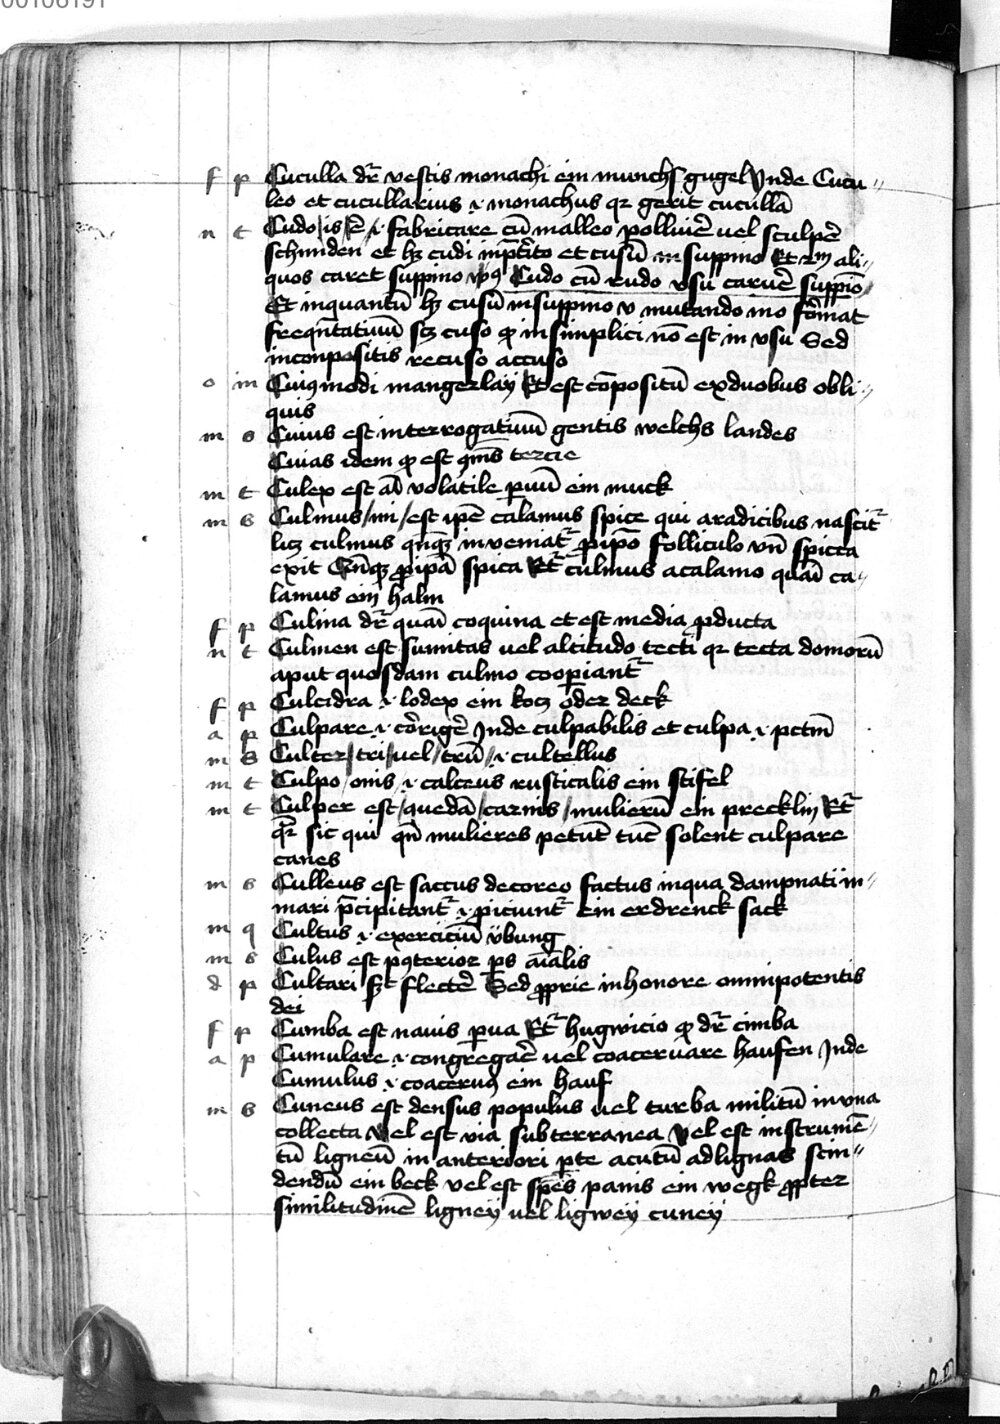 00106191
f p Cuculla dr̄ vestis monachi ein munchs gugel Inde Cucu-
leo et cucullarius .i. monachus qr gerit cucullā
n t Cudo/is/ē/ .i. fabricare cū malleo pollinē uel sculpē
schmiden et hꝫ cudi inp̄terito et cusū in suppino Et ali-
quos caret suppino Cudo cū rudo vsu caruē suppīo
Et inquantū hꝫ cusū in suppino v mutando īno formāt
freqn̄tatiuū scꝫ cuso qꝫ in simplici nō est in vsu Sed
inconpositis recuso accuso
o m Cuiꝰmodi mangerlay Et est cōpositū exduobus obli-
quis
m s Cuius est interrogatiuū gentis welchs landes
Cuias idem qꝫ est gn̄is tercie
m t Culex est aīal volatile paruū ein muck
m s Culmus/mi/est ipē calamus spice qui aradicibus nascit᷑
licꝫ culmus qn̄qꝫ inueniat᷑ pro ip̄o folliculo vn̄ spicca
exit Qn̄qꝫ pro ip̄a spica Et dr̄ culmus acalamo quasi ca-
lamus ein halm
f p Culina dr̄ quasi coquina et est media producta
n t Culmen est sumitas uel altitudo tecti qr tecta domorū
aput quosdam culmo cooperiant᷑
f p Culcidra .i. lodex ein kocꝫ oder deck
a p Culpare .i. corrigē Inde culpabilis et culpa .i. pctm̄
m s Culter/tri/uel/trū/ .i. cultellus
m t Culpo/onis .i. calceus rusticalis ein stifel
m t Culper est/quedā/carnis/mulierū ein precklin Et dr̄
sic qui qn̄ mulieres petunt tunc solent culpare
canes
m s Culleus est saccus decoreo factus inqua dampnati in-
mari p̄cipitant᷑ .i. proiciunt᷑ ein erdrenck sack
m q Cultus .i. exerciciū übung
m s Culus est posterior ps aīalis
d p Cultari flectē Sed proprie inhonore omnipotentis
dei
f p Cumba est nauis parua Et hugwicio qꝫ dr̄ cimba
a p Cumulare .i. congregaē uel coaceruare haufen Inde
Cumulus .i. coaceruꝰ ein hauf
m s Cuneus est densus populus uel turba militū in vna
collecta Uel est via subterranea Uel est instrumē-
tū ligneū in anteriori parte acutū adlignas scin-
dendū ein beck vel est spēs panis ein wegk propter
similitudinē ligney uel ligwey cuney